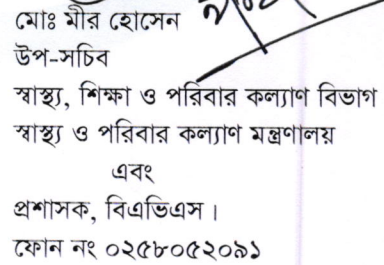 মোঃ মীর হোসেন
উপ-সচিব
স্বাস্থ্য, শিক্ষা ও পরিবার কল্যাণ বিভাগ
স্বাস্থ্য ও পরিবার কল্যাণ মন্ত্রণালয়
এবং
প্রশাসক, বিএভিএস।
ফোন নং ০২৫৮০৫২০৯১